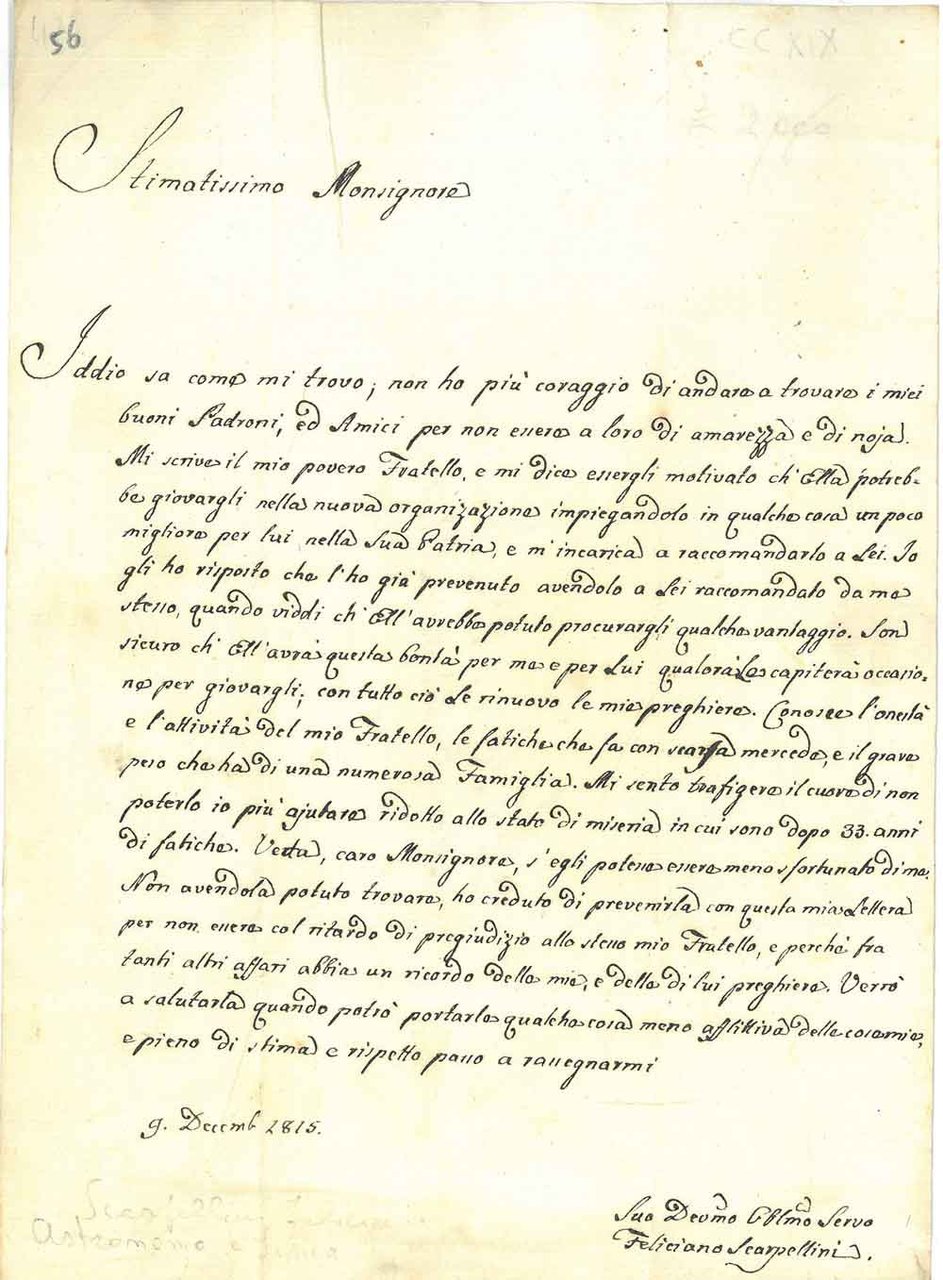 56
CC XIX
Stimatissimo Monsignore
Iddio sa come mi trovo; non ho più coraggio di andare a trovare i miei
buoni Padroni, ed Amici per non essere a loro di amarezza e di noja.
Mi scrive il mio povero Fratello, e mi dice essergli motivato ch' Ella potreb-
be giovargli nella nuova organizazione impiegandolo in qualche cosa un poco
migliore per lui nella sua Patria, e m' incarica a raccomandarlo a Lei. Io
gli ho risposto che l' ho già prevenuto avendolo a Lei raccomandato da me
stesso, quando viddi ch' Ell' avrebbe potuto procurargli qualche vantaggio. Son
sicuro ch' Ell' avrà questa bontà per me e per Lui qualora Le capiterà occasio-
ne per giovargli; con tutto ciò Le rinuovo le mie preghiere. Conosce l' onestà
e l' attività del mio Fratello, le fatiche che fa con scarsa mercede, e il grave
peso che ha di una numerosa Famiglia. Mi sento trafigere il cuore di non
poterlo io più ajutare ridotto allo stato di miseria in cui sono dopo 33. anni
di fatiche. caro Monsignore, s' egli potesse essere meno sfortunato di me.
Non avendola potuto trovare, ho creduto di prevenirla con questa mia Lettera
per non essere col ritardo di pregiudizio allo stesso mio Fratello, e perchè fra
tanti altri affari abbia un ricordo delle mie, e delle di lui preghiere. Verrò
a salutarla quando potrò portarle qualche cosa meno afflittiva delle cose mie,
e pieno di stima e rispetto passo a rassegnarmi
9. Decemb 1815.
Suo Devmo Obblmo Servo
Feliciano Scarpellini.
Astronomo e